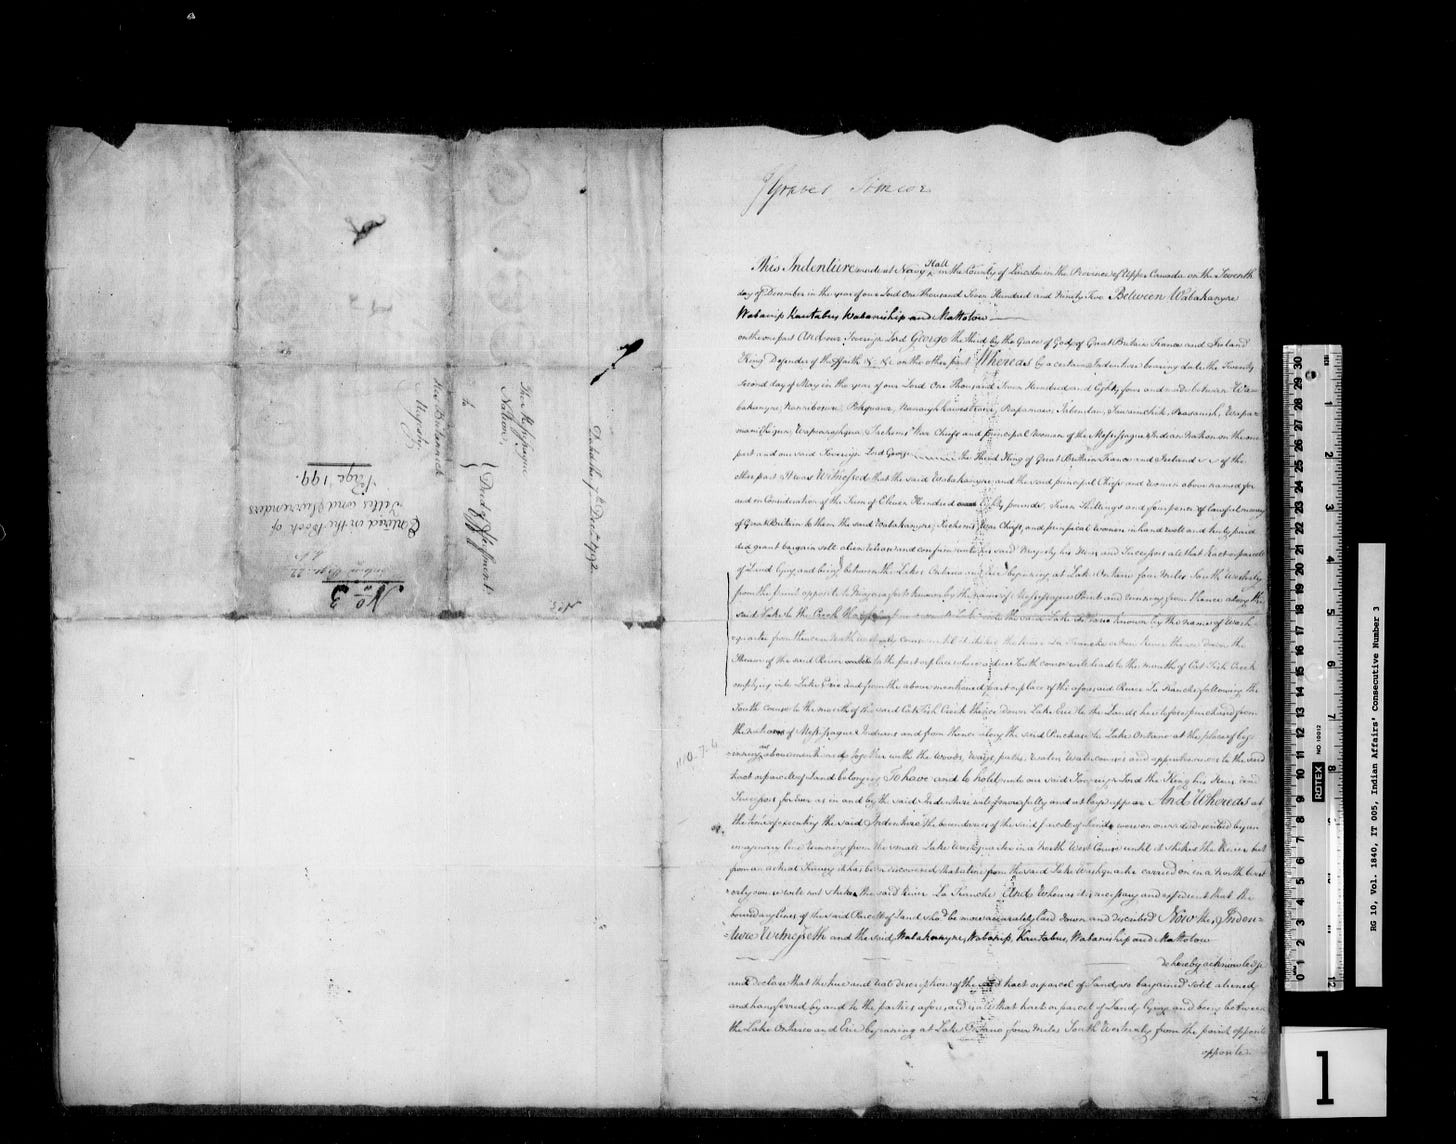 J Graves Simcoe
This Indenture made at Navy Hall in the County of Lincoln in the Province of Upper Canada on the Seventh
day of December in the year of our Lord One thousand Seven Hundred and Ninety Two Between Wabakanyne
Wabanip Kautabus Wabaniship and Mattotow
on the one part And our Sovereign Lord George the third by the Grace of God of Great Britain France and Ireland
King Defender of the Faith &c &c on the other part Whereas by a certain Indenture bearing date the Twenty
Second day of May in the year of our Lord One Thousand Seven Hundred and Eighty four and made between Wa-
bakanyne, Nannibosure, Pokquawr, Nanaughkawestrawr, Peapamaw, Tabendau, Sawainchik, Peasanish, Wapa-
manischigun, Wapeanojhqua, Sachems War Chiefs and principal Woman of the Messissague Indian Nation on the one
part and our said Sovereign Lord George the Third King of Great Britain France and Ireland &c &c of the
other part It was Witnessed that the said Wabakanyne and the said principal Chiefs and Women above named for
and in Consideration of the Sum of Eleven Hundred and Eighty pounds, Seven Shillings and four pence of lawful money
of Great Britain to them the said Wabakanyne, Sachems War Chiefs, and principal Women in hand well and truly paid
did grant bargain sell alien release and confirm unto his said Majesty his Heirs and Successors all that tract or parcel
of Land lying and being between the Lakes Ontario and Erie beginning at Lake Ontario four Miles South Westerly
from the point opposite to Niagara fort known by the name of Messissague Point and running from thence along the
said Lake to the Creek that from a small Lake into the said Lake known by the name of Wash-
quarter from thence a North Westerly course until it strikes the River La Tranche or New River thence down the
Stream of the said River to the part or place where a due South course will lead to the mouth of Cat Fish Creek
emptying into Lake Erie and from the above mentioned part or place of the aforesaid River La Tranche, following the
South Course to the mouth of the said Cat Fish Creek thence down Lake Erie to the Lands heretofore purchased from
the nation of Messissague Indians and from thence along the said Purchase to Lake Ontario at the place of beg-
inning as above mentioned together with the Woods, Ways, paths, Waters Watercourses and appurtenances to the said
tract or parcell of Land belonging To have and to hold unto our said Sovereign Lord the King his Heirs and
Successors for Ever as in and by the said Indenture will more fully and at large appear And Whereas at
the time of executing the said Indenture the boundaries of the said parcell of Land were on one side described by an
imaginary line running from the small Lake Washquarter in a North West Course until it strikes the River but
from an actual Survey it has been discovered that a line from the said Lake Washquarter carried on in a North West
erly course will not strike the said River La Tranche And Whereas it is necessary and expedient that the
boundary lines of the said Parcell of Land shou'd be more accurately laid down and described Now this Inden-
ture Witnesseth and the said Wabakanyne, Wabanip, Kautabus, Wabaniship and Mattotow
do hereby acknowledge
and declare that the true and real description of the said tract or parcel of Land, so bargained sold aliened
and transferred by and to the parties aforesaid is all that tract or parcel of Land, lying and being between
the Lake Ontario and Erie beginning at Lake Ontario four Miles South Westerly from the point opposite
opposite
Dated the 7th Decr. 1792
The Messissague Nation
to
His Britannick Majesty
Deed of
No. 3
No 3
Entered in the Book of
Titles and Surrenders
Page 199.
RG 10, Vol. 1840, IT 005, Indian Affairs' Consecutive Number 3
ROTEX NO. 10012
1